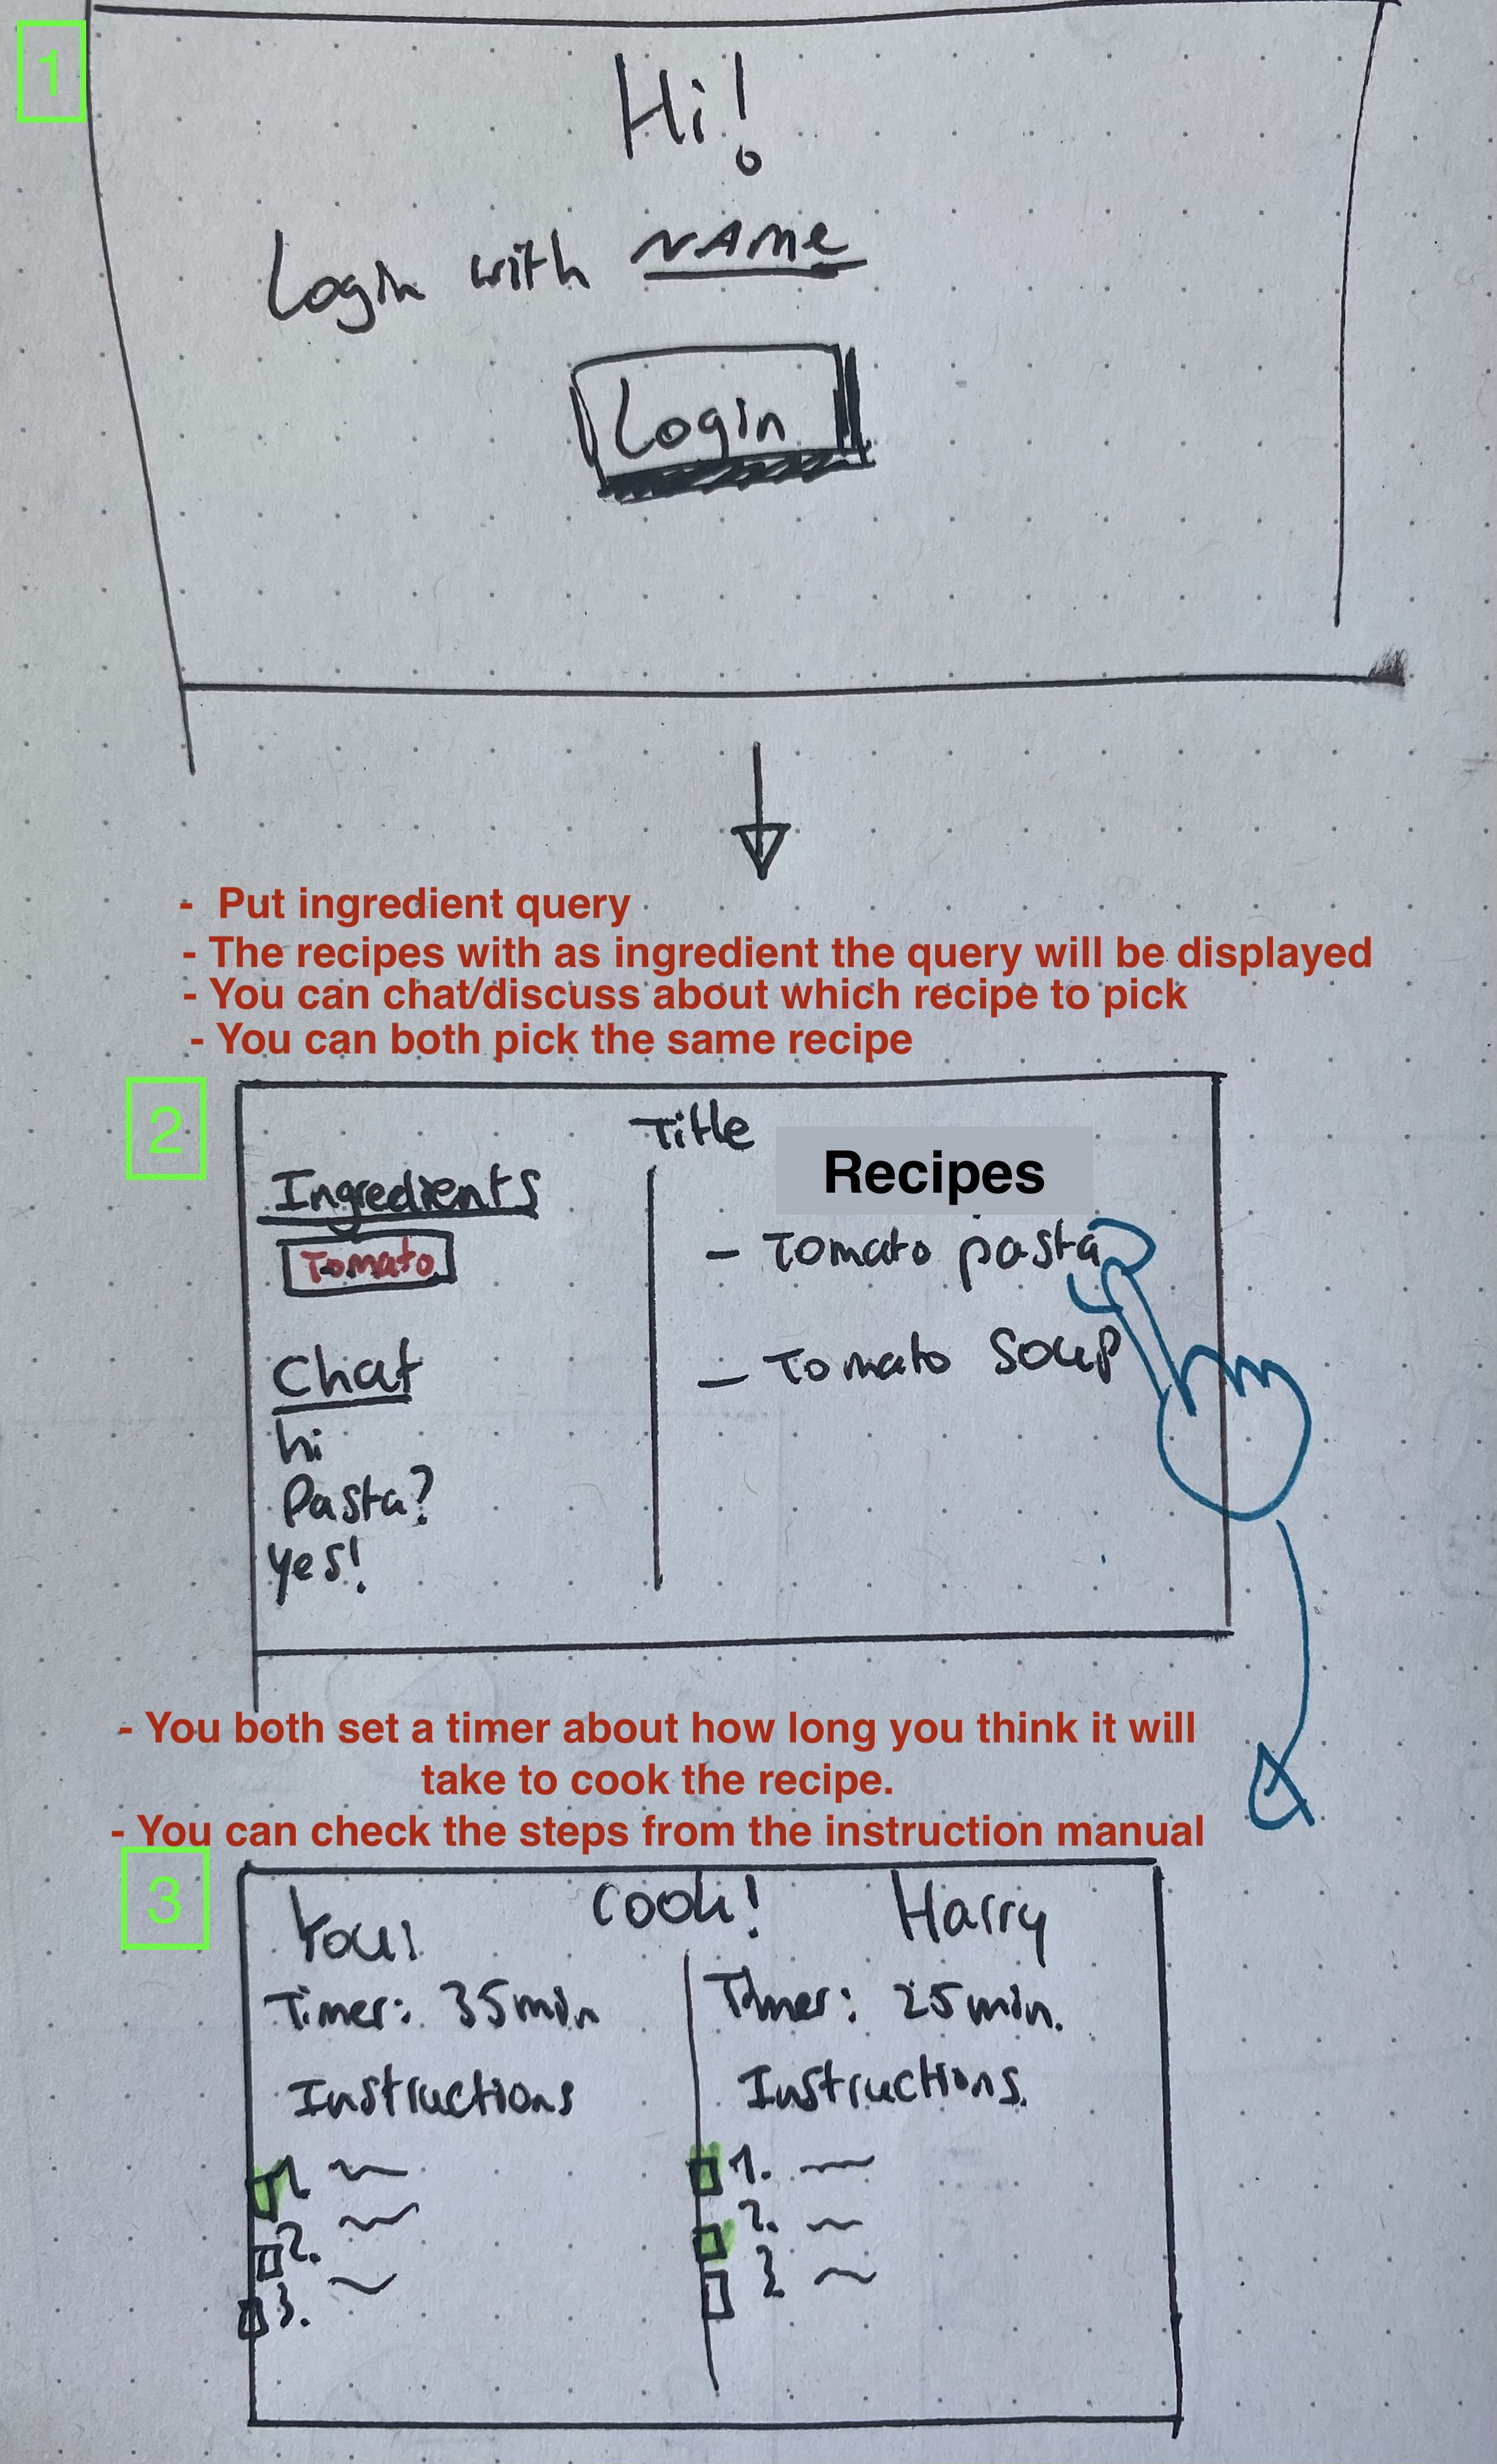 1
Hi!
Login with NAMe
Login
- Put ingredient query
- The recipes with as ingredient the query will be displayed
- You can chat/discuss about which recipe to pick
- You can both pick the same recipe
2
Title
Ingredients
Tomato
Chat
hi
Pasta?
yes!
Recipes
- Tomato pasta
- Tomato Soup
- You both set a timer about how long you think it will
take to cook the recipe.
- You can check the steps from the instruction manual
3
Cook!
Timer: 35min
Instructions
1.
2.
3.
Harry
Timer: 25min.
Instructions.
1.
2.
3